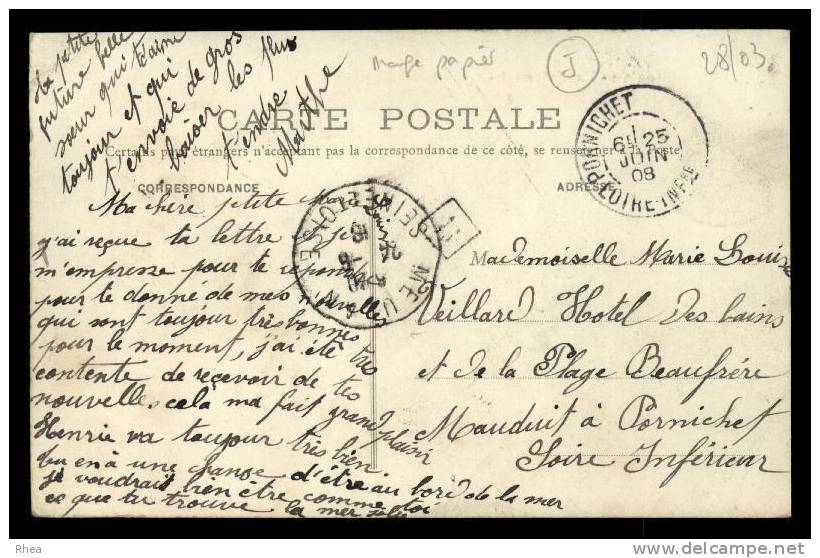 Ma petite
future belle
sœur qui t'aime
toujour et qui
t'envoie de gros
baiser les plus
tendre
Marthe
papier
J
28/03
CARTE POSTALE
Certains pays étrangers n'acceptant pas la correspondance de ce côté, se renseigner à la Poste
CORRESPONDANCE
ADRESSE
PORNICHET
6H 25
JUIN
08
LOIRE INFRE
SEINE ET OISE
MEULAN
Ma chère petite Marie Louise
j'ai reçue ta lettre et je
m'empresse pour te repondre
pour te donné de mes nouvelles
qui sont toujour très bonnes
pour le moment, j'ai été très
contente de reçevoir de tes
nouvelles, celà ma fait grand plaisir
Henrie va toujour très bien
tu en à une chance d'être au bord de la mer
je voudrais bien être comme toi
ce que tu trouve la mer
Mademoiselle Marie Louise
Veillard Hotel des bains
et de la Plage Beaufrére
Mauduit à Pornichet
Loire Inférieur
Rhea
www.delcampe.net